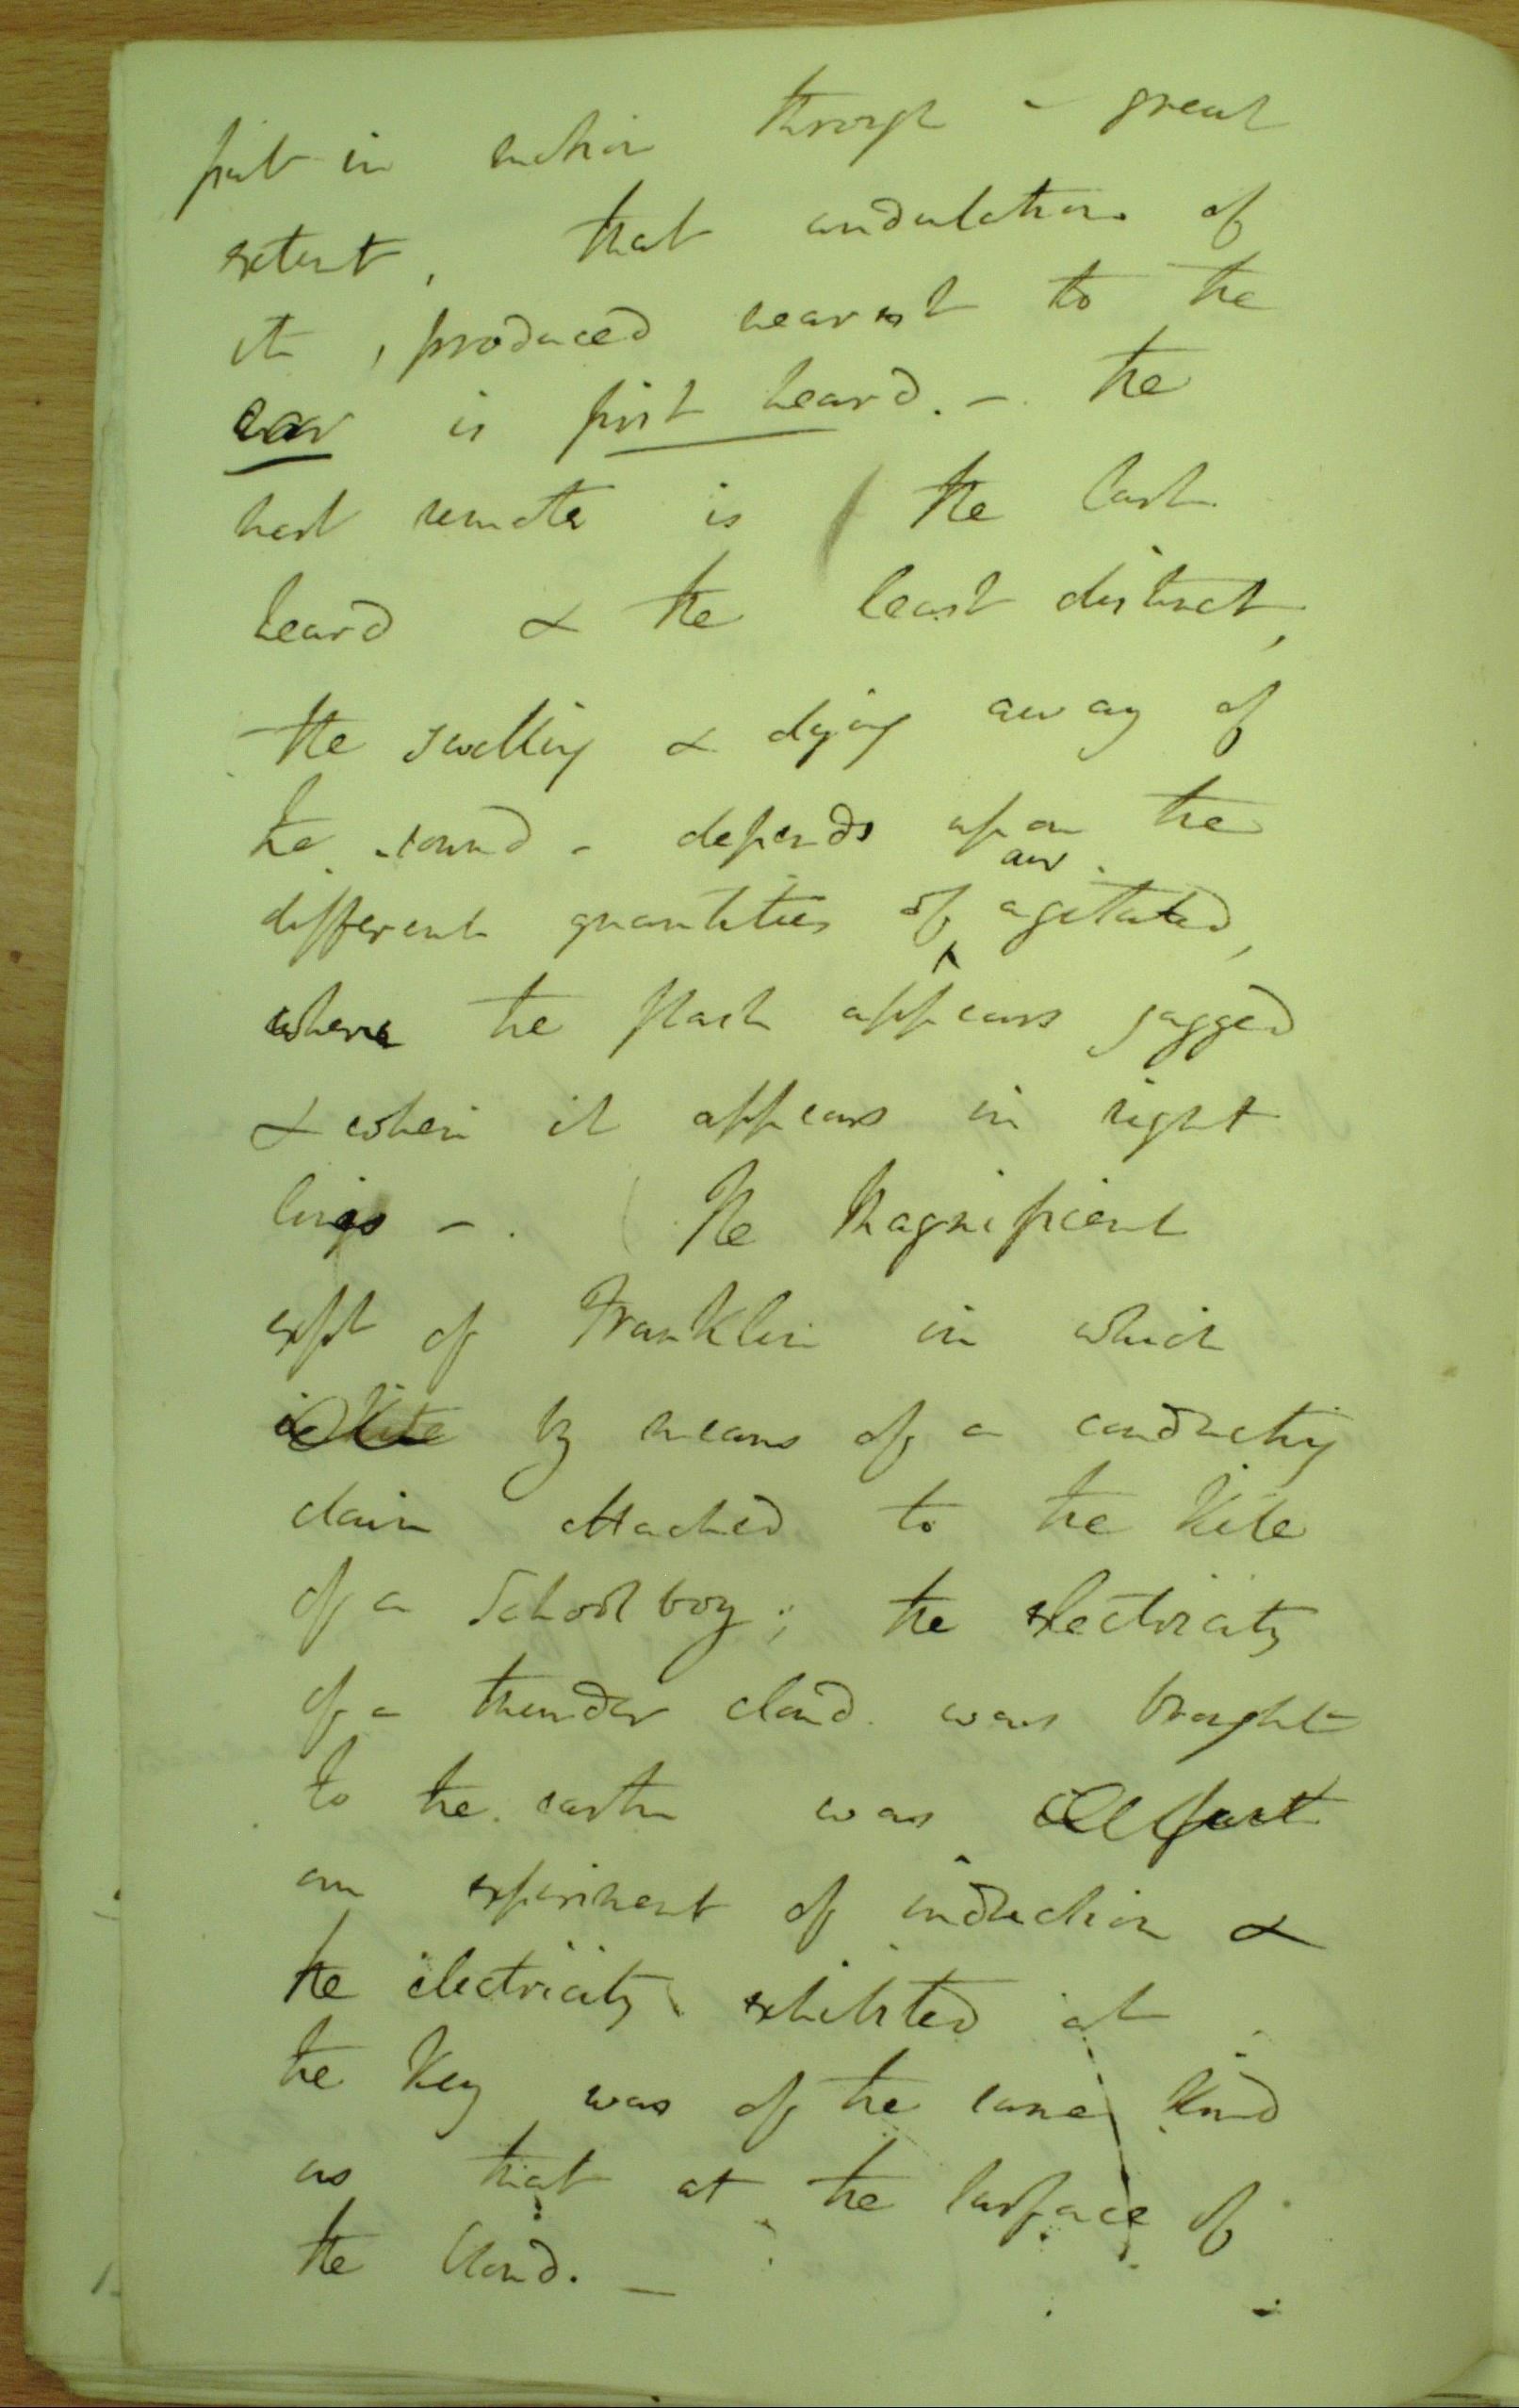 put in motion through a great
extent, that undulation of
it, produced nearest to the
ear is first heard. - The
most remote is the last
heard & the least distinct,
the swelling & dying away of
the sound - depends upon the
air
different quantities of agitated,
where the flash appears jagged
& when it appears in right
lines -. The Magnificent
expt of Franklin in which
by means of a conducting
chain attached to the Kite
of a School boy; the electricity
of a thunder cloud was brought
to the earth was
an experiment of induction &
the electricity exhibited at
the Key was of the same Kind
as that at the surface of
the Cloud. -